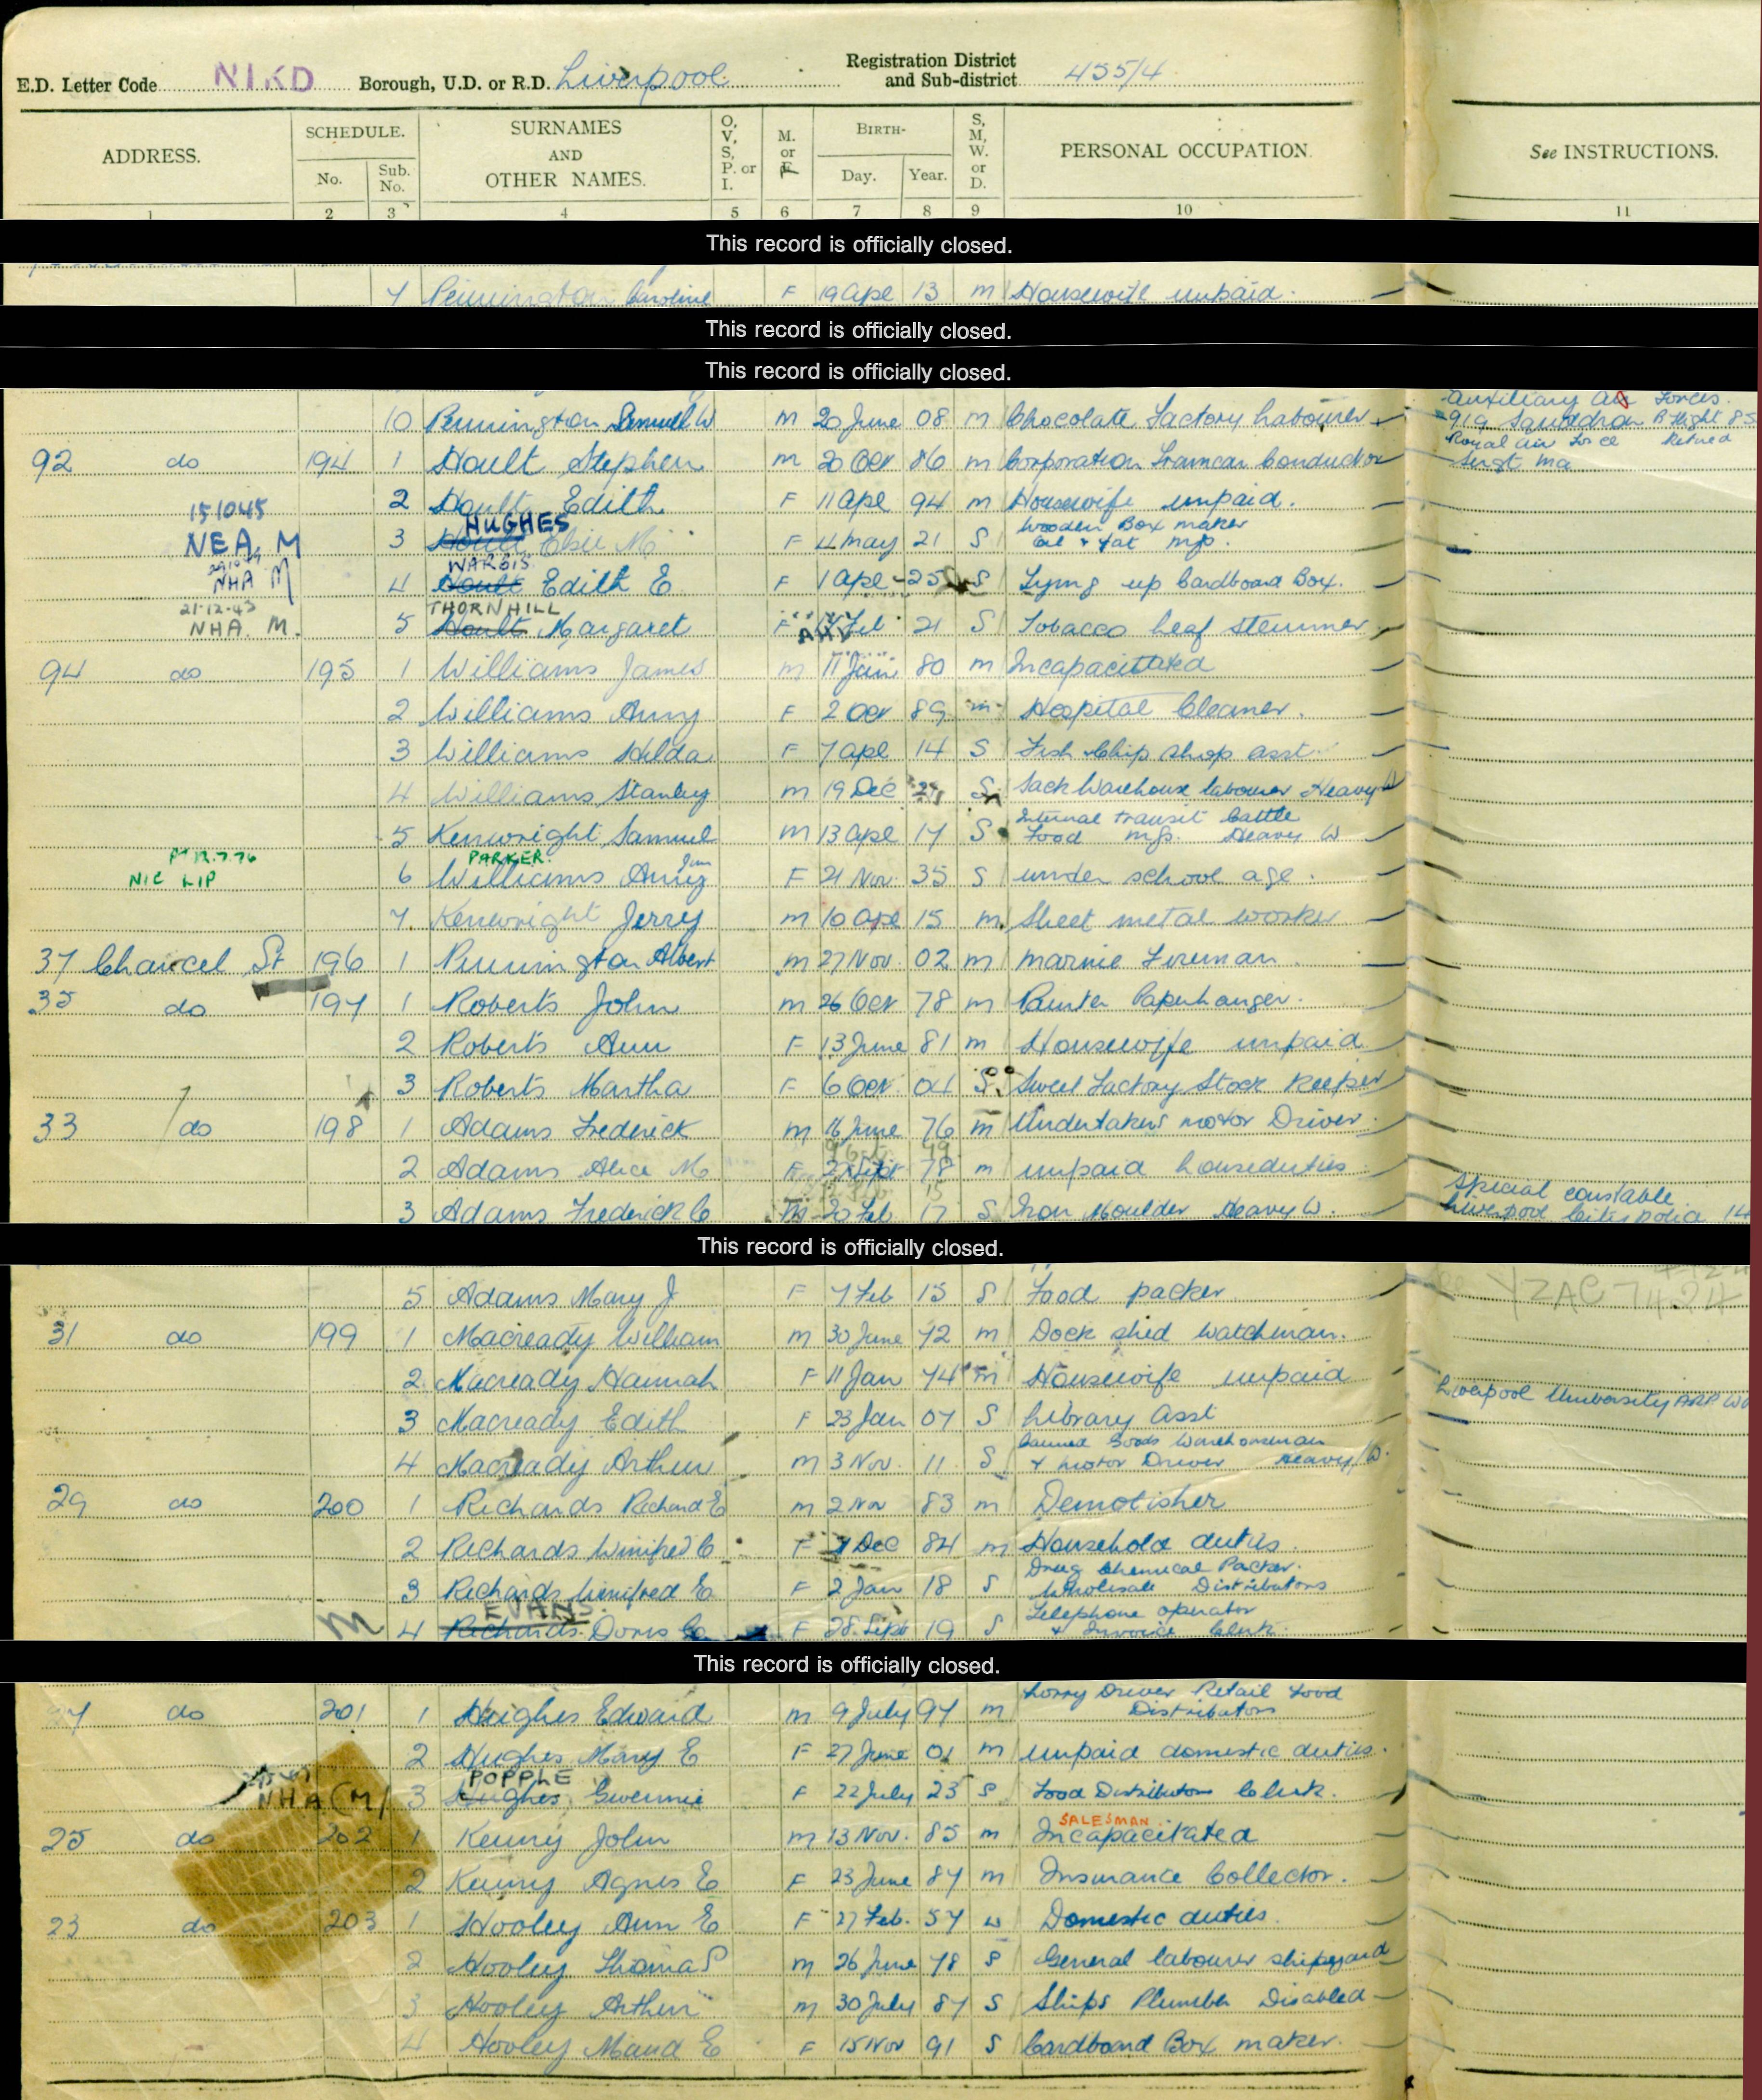 E.D. Letter Code NIKD Borough, U.D. or R.D. Liverpool Registration District and Sub-district 455/4
ADDRESS. SCHEDULE. No. Sub. No. SURNAMES AND OTHER NAMES. O, V, S, P. or I. M. or F. BIRTH- Day. Year. S, M, W. or D. PERSONAL OCCUPATION. See INSTRUCTIONS.
1 2 3 4 5 6 7 8 9 10 11
This record is officially closed.
7 Pennington Caroline F 19 Apl 13 m Housewife unpaid.
This record is officially closed.
This record is officially closed.
Auxiliary Air Forces.
10 Pennington Samuel W m 20 June 08 m Chocolate Factory Labourer 919 Squadron B Flight 85
Royal Air Force Retired
92 do 194 1 Hoult Stephen m 20 Oct 86 m Corporation Tramcar Conductor Sergt Ma
2 Hoult Edith F 11 Apl 94 m Housewife unpaid.
151045 HUGHES Wooden Box maker
NEA, M 3 Hoult Elsie M F 11 May 21 S Oil & Fat Mfr.
WARDIS
NHA M 4 Hoult Edith E F 1 Apl 25 S Tying up Cardboard Box.
21-12-43 THORNHILL
NHA. M. 5 Hoult Margaret F Feb 21 S Tobacco Leaf Stemmer
94 do 195 1 Williams James m 11 Jan 80 m Incapacitated
2 Williams Anny F 2 Oct 89 m Hospital Cleaner.
3 Williams Hilda F 7 Apl 14 S Fish Chip Shop asst.
4 Williams Stanley m 19 Dec S Sack Warehouse labourer Heavy W
Internal transit Cattle
5 Kenwright Samuel m 13 Apl 17 S Food Mfr. Heavy W
PARKER. Jun
NIC LIP 6 Williams Anny F 21 Nov. 35 S under school age.
7. Kenwright Jerry m 10 Apl 15 m. Sheet metal worker
37 Chancel St 196 1 Pennington Albert m 27 Nov. 02 m Marine Fireman.
35 do 197 1 Roberts John m 26 Oct 78 m Painter Paperhanger.
2 Roberts Ann F 13 June 81 m Housewife unpaid
3 Roberts Martha F 6 Oct 04 S. Sweet Factory Stock Keeper
33 do 198 1 Adams Frederick m 16 June 76 m Undertakers motor Driver.
2 Adams Alice M F 2 Sept 78 m unpaid houseduties
Special constable
3 Adams Frederick C m 20 Feb 17 S Iron Moulder Heavy W. Liverpool City police 14
This record is officially closed.
5 Adams Mary J F 7 Feb 15 S Food packer YZAC 7424
31 do 199 1 Macready William m 30 June 72 m Dock shed Watchman.
2 Macready Hannah F 11 Jan 74 m Housewife unpaid
3 Macready Edith F 23 Jan 07 S Library Asst Liverpool University ARP Wa
Canned Goods Warehouseman
4 Macready Arthur m 3 Nov. 11 S & Motor Driver Heavy W.
29 do 200 1 Richards Richard E m 2 Nov 83 m Demolisher
2 Richards Winifred C F Dec 84 m Household duties.
Drug Chemical Packer.
3 Richards Winifred E F 2 Jan 18 S Wholesale Distributors
EVANS. Telephone operator
M 4 Richards Doris F 28 Sept 19 S & Invoice Clerk.
This record is officially closed.
Lorry Driver Retail Food
27 do 201 1 Hughes Edward m 9 July 97 m Distributors
2 Hughes Mary E F 27 June 01 m unpaid domestic duties.
POPPLE
NHA (M) 3 Hughes Gwennie F 22 July 23 S Food Distributor Clerk.
SALESMAN
25 do 202 1 Kenny John m 13 Nov. 85 m Incapacitated
2 Kenny Agnes E F 23 June 87 m Insurance Collector.
23 do 203 1 Hooley Ann E F 27 Feb. 57 w Domestic duties.
2 Hooley Thomas m 26 June 78 S General labourer shipyard
3 Hooley Arthur m 30 July 87 S Ships Plumber Disabled
4 Hooley Maud E F 15 Nov 91 S Cardboard Box maker.